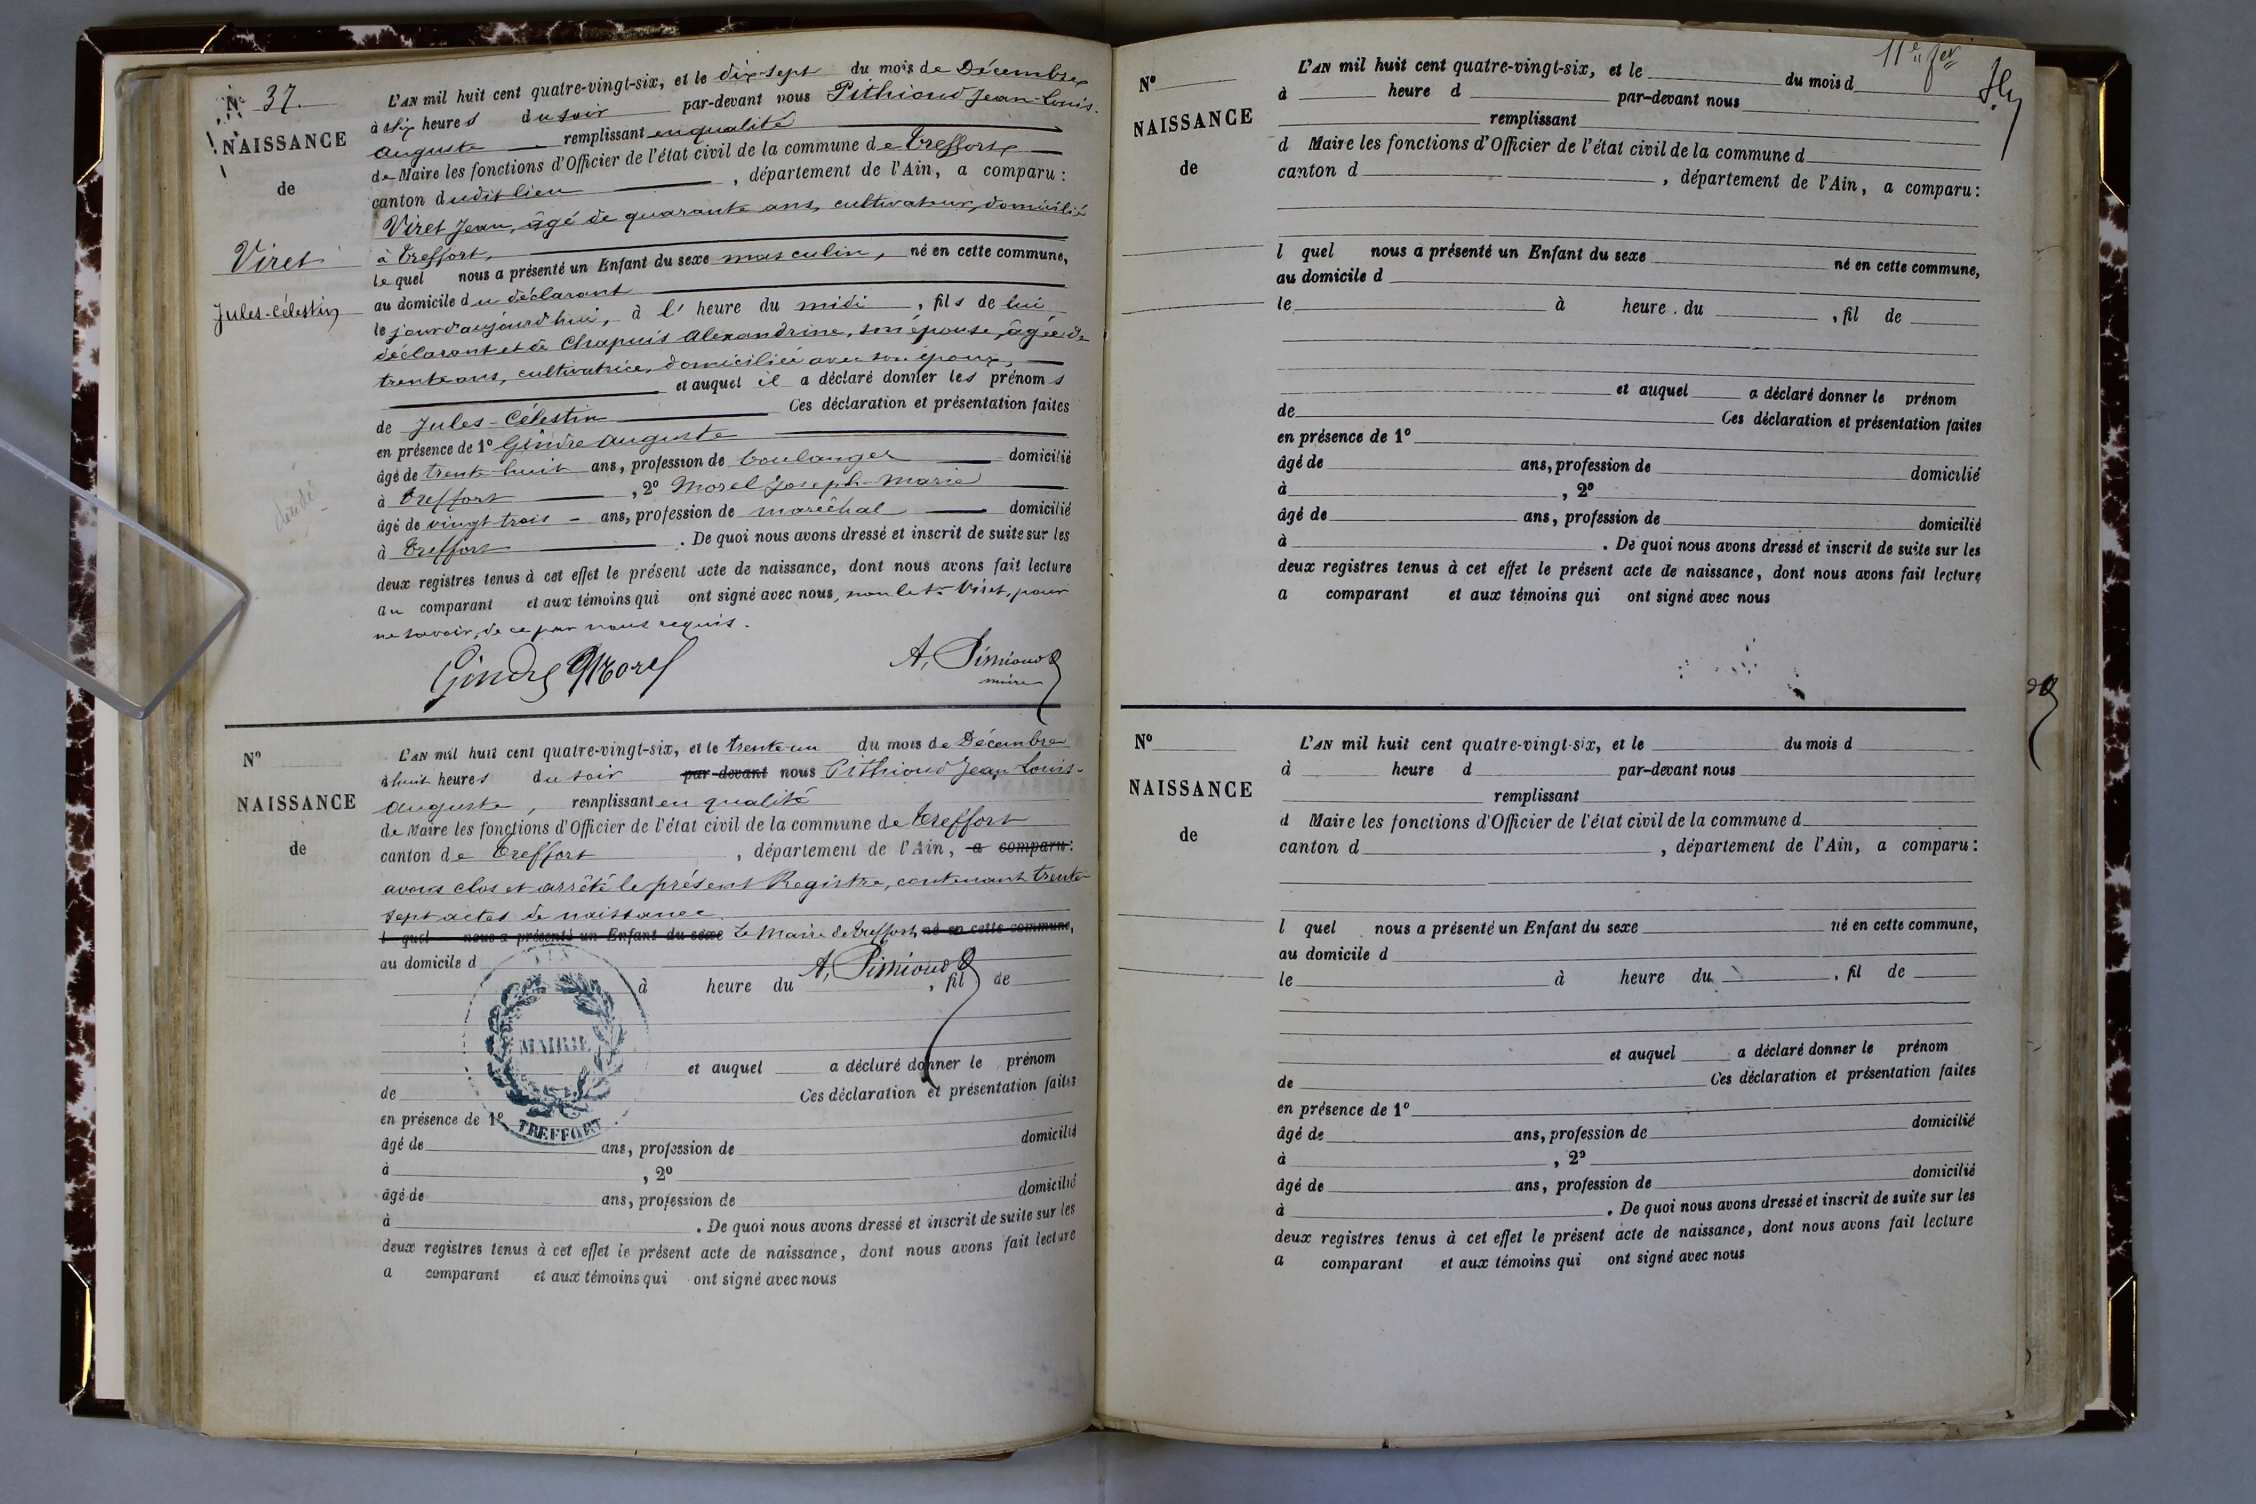 N° 37.
NAISSANCE
de
Viret
Jules-Célestin
décédé
L'AN mil huit cent quatre-vingt-six, et le dix-sept du mois de Décembre
à six heures du soir par-devant nous Pithioud Jean-Louis-
Auguste remplissant en qualité
de Maire les fonctions d'Officier de l'état civil de la commune de Treffort
canton dudit lieu , département de l'Ain, a comparu :
Viret Jean, âgé de quarante ans, cultivateur, domicilié
à Treffort,
lequel nous a présenté un Enfant du sexe masculin, né en cette commune,
au domicile du déclarant
le jour d'aujourd'hui, à l' heure du midi , fils de lui
déclarant et de Chapuis Alexandrine, son épouse, âgée de
trente ans, cultivatrice, domiciliée avec son époux,
et auquel il a déclaré donner les prénoms
de Jules-Célestin Ces déclaration et présentation faites
en présence de 1° Gindre Auguste
âgé de trente-huit ans, profession de boulanger domicilié
à Treffort , 2° Morel Joseph-Marie
âgé de vingt-trois - ans, profession de maréchal domicilié
à Treffort . De quoi nous avons dressé et inscrit de suite sur les
deux registres tenus à cet effet le présent acte de naissance, dont nous avons fait lecture
au comparant et aux témoins qui ont signé avec nous, non le t. Viret, pour
ne savoir, de ce par nous requis.
Gindre Morel A, Pithioud
maire
N°
NAISSANCE
de
L'AN mil huit cent quatre-vingt-six, et le trente un du mois de Décembre
à huit heures du soir par-devant nous Pithioud Jean Louis-
Auguste, remplissant en qualité
de Maire les fonctions d'Officier de l'état civil de la commune de Treffort
canton de Treffort , département de l'Ain, a comparu :
avons clos et arrêté le présent Registre, contenant trente-
sept actes de naissance.
l quel nous a présenté un Enfant du sexe Le Maire de Treffort, né en cette commune,
au domicile d
A, Pithioud
à heure du , fil de
MAIRIE
TREFFORT
et auquel a déclaré donner le prénom
de Ces déclaration et présentation faites
en présence de 1°
âgé de ans, profession de domicilié
à , 2°
âgé de ans, profession de domicilié
à . De quoi nous avons dressé et inscrit de suite sur les
deux registres tenus à cet effet le présent acte de naissance, dont nous avons fait lecture
a comparant et aux témoins qui ont signé avec nous
11e
N°
NAISSANCE
de
L'AN mil huit cent quatre-vingt-six, et le du mois d
à heure d par-devant nous
remplissant
d Maire les fonctions d'Officier de l'état civil de la commune d
canton d , département de l'Ain, a comparu :
l quel nous a présenté un Enfant du sexe né en cette commune,
au domicile d
le à heure du , fil de
et auquel a déclaré donner le prénom
de Ces déclaration et présentation faites
en présence de 1°
âgé de ans, profession de domicilié
à , 2°
âgé de ans, profession de domicilié
à . De quoi nous avons dressé et inscrit de suite sur les
deux registres tenus à cet effet le présent acte de naissance, dont nous avons fait lecture
a comparant et aux témoins qui ont signé avec nous
N°
NAISSANCE
de
L'AN mil huit cent quatre-vingt-six, et le du mois d
à heure d par-devant nous
remplissant
d Maire les fonctions d'Officier de l'état civil de la commune d
canton d , département de l'Ain, a comparu :
l quel nous a présenté un Enfant du sexe né en cette commune,
au domicile d
le à heure du , fil de
et auquel a déclaré donner le prénom
de Ces déclaration et présentation faites
en présence de 1°
âgé de ans, profession de domicilié
à , 2°
âgé de ans, profession de domicilié
à . De quoi nous avons dressé et inscrit de suite sur les
deux registres tenus à cet effet le présent acte de naissance, dont nous avons fait lecture
a comparant et aux témoins qui ont signé avec nous